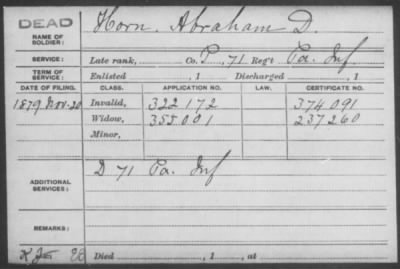 DEAD
NAME OF SOLDIER: Horn, Abraham D.
SERVICE: Late rank, Co. P, 71 Reg't Pa. Inf.
TERM OF SERVICE: Enlisted , 1 Discharged , 1
DATE OF FILING. CLASS. APPLICATION NO. LAW. CERTIFICATE NO.
1879 Nov. 20 Invalid, 322 172 374 091
Widow, 355 001 237 260
Minor,
ADDITIONAL SERVICES: D 71 Pa. Inf
REMARKS:
Died , 1 , at